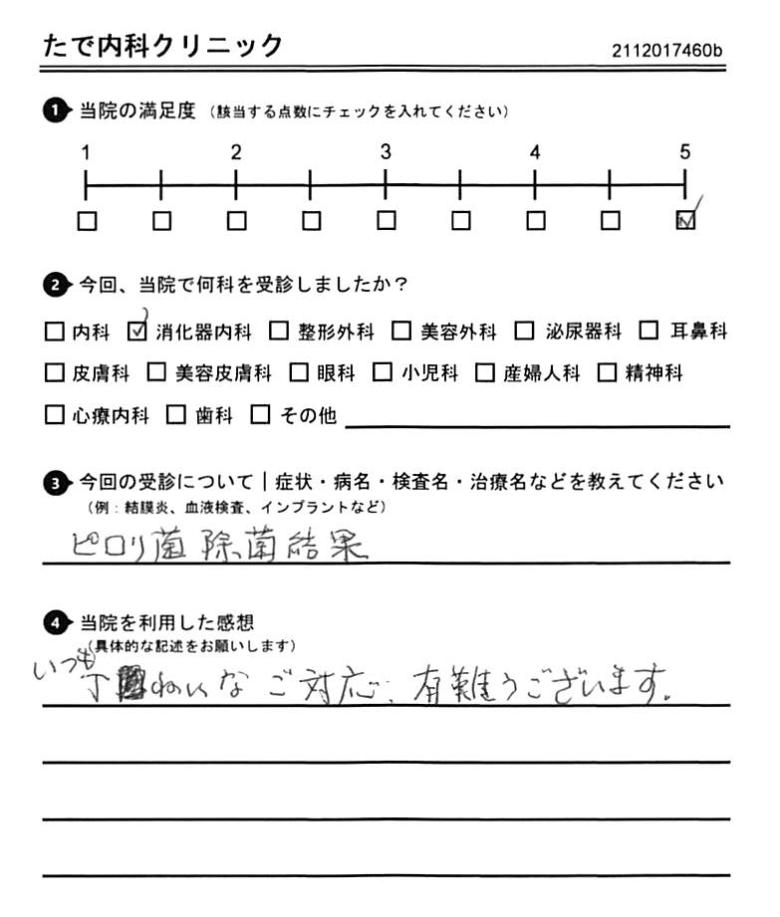 たで内科クリニック 2112017460b
1 当院の満足度（該当する点数にチェックを入れてください）
1 2 3 4 5
2 今回、当院で何科を受診しましたか？
□内科 ☑消化器内科 □整形外科 □美容外科 □泌尿器科 □耳鼻科
□皮膚科 □美容皮膚科 □眼科 □小児科 □産婦人科 □精神科
□心療内科 □歯科 □その他
3 今回の受診について｜症状・病名・検査名・治療名などを教えてください
（例：結膜炎、血液検査、インプラントなど）
ピロリ菌除菌結果
4 当院を利用した感想
（具体的な記述をお願いします）
いつも
丁ねいなご対応、有難うございます。